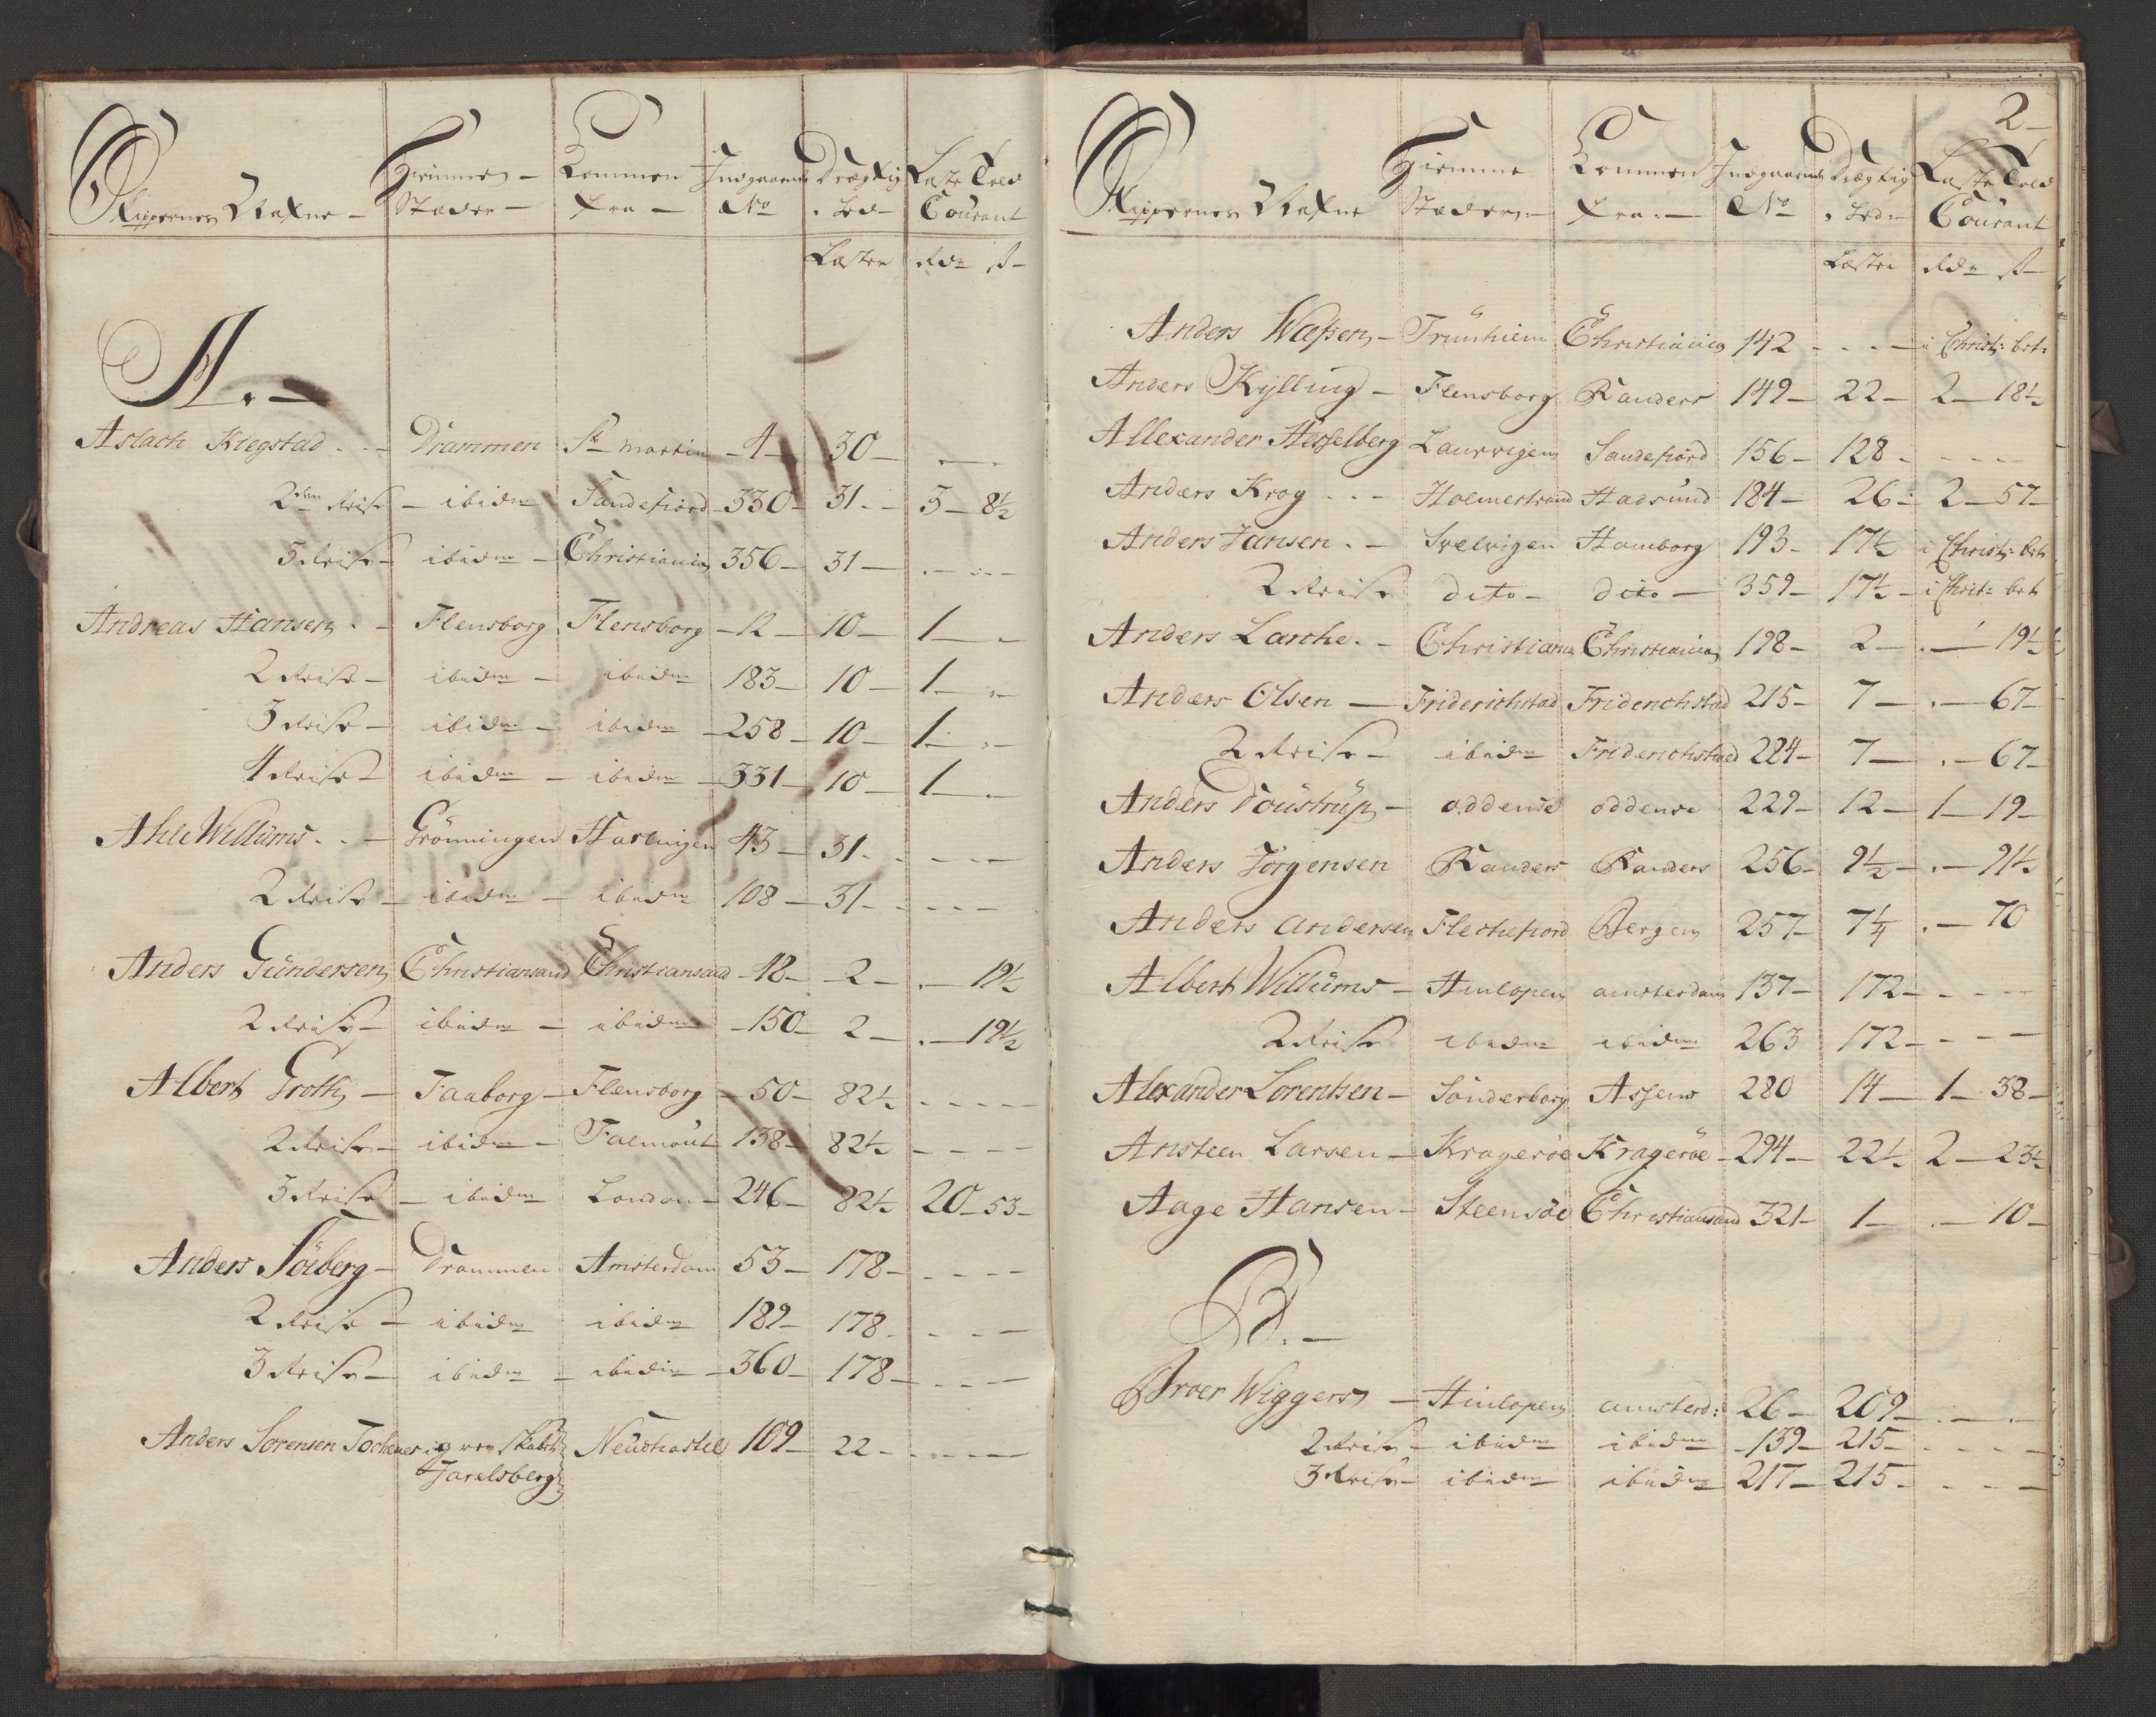 Skippernes Nafne - Hiemmes - Stæder - Kommen fra - Indgaaende No Drægtig: hed - Læste Told Courant
Læster Rdr ß
A. -
Aslach Kregstad - Drammen St Martin 4 30 -
2den Reise - ibidm Sandefiord 330 31 - 3 - 8½
3 Reise - ibidm - Christiania 356 - 31 -
Andreas Hansen - Flensborg Flensborg - 12 - 10 - 1 -
2 Reise - ibidm - ibidm 183 - 10 - 1 -
3 Reise - ibidm - ibidm - 258 - 10 - 1 -
4 Reise - ibidm - ibidm - 331 - 10 - 1 -
Ahle Willums - Grönningen Harlingen 43 - 31 -
2 Reise - ibidm - ibidm 108 - 31 -
Anders Gündersen Christiansand Christiansand - 48 - 2 - . - 19½
2 Reise - ibidm - ibidm - 150 - 2 - . - 19½
Albert Groth - Faaborg - Flensborg - 50 - 82½
2 Reise - ibidm - Falmout 138 - 82½
3 Reise - ibidm London - 246 - 82½ 20 - 53 -
Anders Söeberg - Drammen Amsterdam 53 - 178 -
2 Reise - ibidm ibidm 189 - 178 -
3 Reise - ibidm - ibidm - 360 - 178 -
Anders Sorensen Tochenes Neucastel 109 - 22 -
Jarelsberg
2 -
Skippernes Nafne Hiemme Stæder - Kommen fra - Indgaaende No Drægtig: hed - Læste Told Courant
Læster Rdr ß
Anders Wassen - Trünhiem Christiania 142 - i Christ: bet:
Anders Kylling - Flensborg Randers 149 - 22 - 2 - 18½
Allexander Hesselberg Laurvigen Sandefiord 156 - 128 -
Anders Krog - Holmestrand Hadsund 184 - 26 - 2 - 57 -
Anders Jansen - Svelvigen Hamborg 193 - 17½ i Christ: bet
2 Reise dito - dito - 359 - 17½ - i Christ: bet
Anders Larche - Christiania Christiania 198 - 2 - . - 19½
Anders Olsen - Friderichstad Friderichstad 215 - 7 - . - 67 -
2 Reise - ibidm Friderichstad 284 - 7 - . - 67 -
Anders Toustrup - oddense oddense 229 - 12 - 1 - 19 -
Anders Jörgensen Randers Randers 256 - 9½ - . - 91½
Anders Andersen Flechefiord Bergen 257 - 7¼ . - 70
Albert Willüms - Hinlopen amsterdam 137 - 172 -
2 Reise ibidm ibidm 263 172 -
Alexander Lorentsen - Sönderborg Assens 280 14 - 1 - 38 -
Ansteen Larsen - Krageröe Krageröe - 294 - 22½ 2 - 23½
Aage Hansen - Steensöe Christiansand 321 - 1 - . - 10 -
B. -
Broer Wiggers - Hinlopen amsterd: 26 - 209 -
2 Reise - ibidm ibidm - 139 - 215 -
3 Reise - ibidm ibidm 217 - 215 -